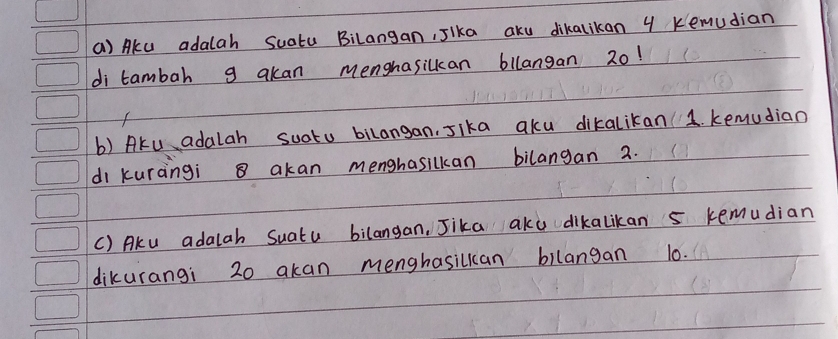 a) Aku adalah suatu Bilangan, Jika aku dikalikan 4 kemudian
di tambah 9 akan menghasilkan bilangan 20!
b) Aku adalah suatu bilangan. Jika aku dikalikan 1. kemudian
di kurangi 8 akan menghasilkan bilangan 2.
c) Aku adalah suatu bilangan. Jika aku dikalikan 5 kemudian
dikurangi 20 akan menghasilkan bilangan 10.